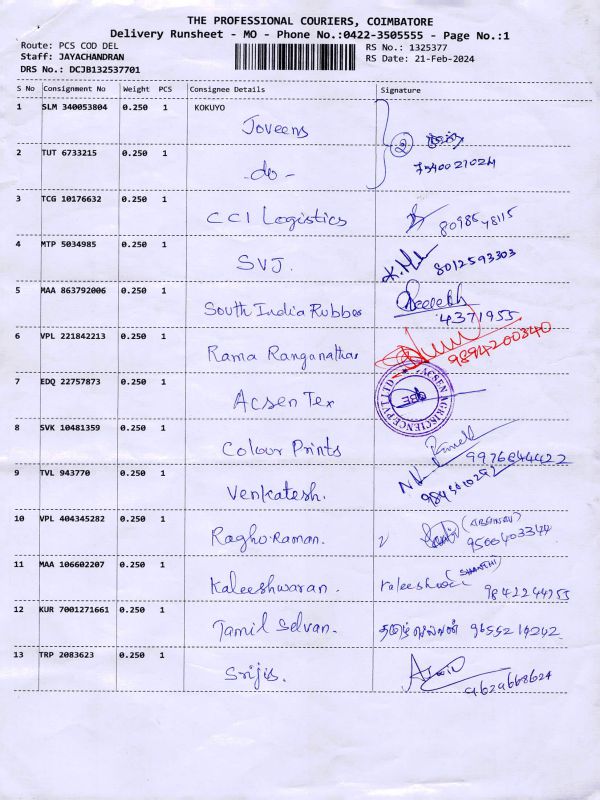 THE PROFESSIONAL COURIERS, COIMBATORE
Delivery Runsheet - MO - Phone No.:0422-3505555 - Page No.:1
Route: PCS COD DEL
RS No.: 1325377
Staff: JAYACHANDRAN
RS Date: 21-Feb-2024
DRS No.: DCJB132537701
S No Consignment No Weight PCS Consignee Details Signature
1 SLM 340053804 0.250 1 KOKUYO
Joveens
2 TUT 6733215 0.250 1
-do-
2
7540021024
3 TCG 10176632 0.250 1
CCI Logistics
8098548115
4 MTP 5034985 0.250 1
SVJ.
K.
8012593303
5 MAA 863792006 0.250 1
South India Rubber
4371955
6 VPL 221842213 0.250 1
Rama Ranganathan
9894200340
7 EDQ 22757873 0.250 1
Acsen Tex
ACSEN AGRISCIENCE PVT LTD
CBE
8 SVK 10481359 0.250 1
Colour Prints
9976844422
9 TVL 943770 0.250 1
Venkatesh.
10 VPL 404345282 0.250 1
Raghu Raman.
9566403344
11 MAA 106602207 0.250 1
Kaleeshwaran.
(SHANTHI)
9842244955
12 KUR 7001271661 0.250 1
Tamil Selvan.
தமிழ்செல்வன் 9655210202
13 TRP 2083623 0.250 1
Srijis.
9629668624